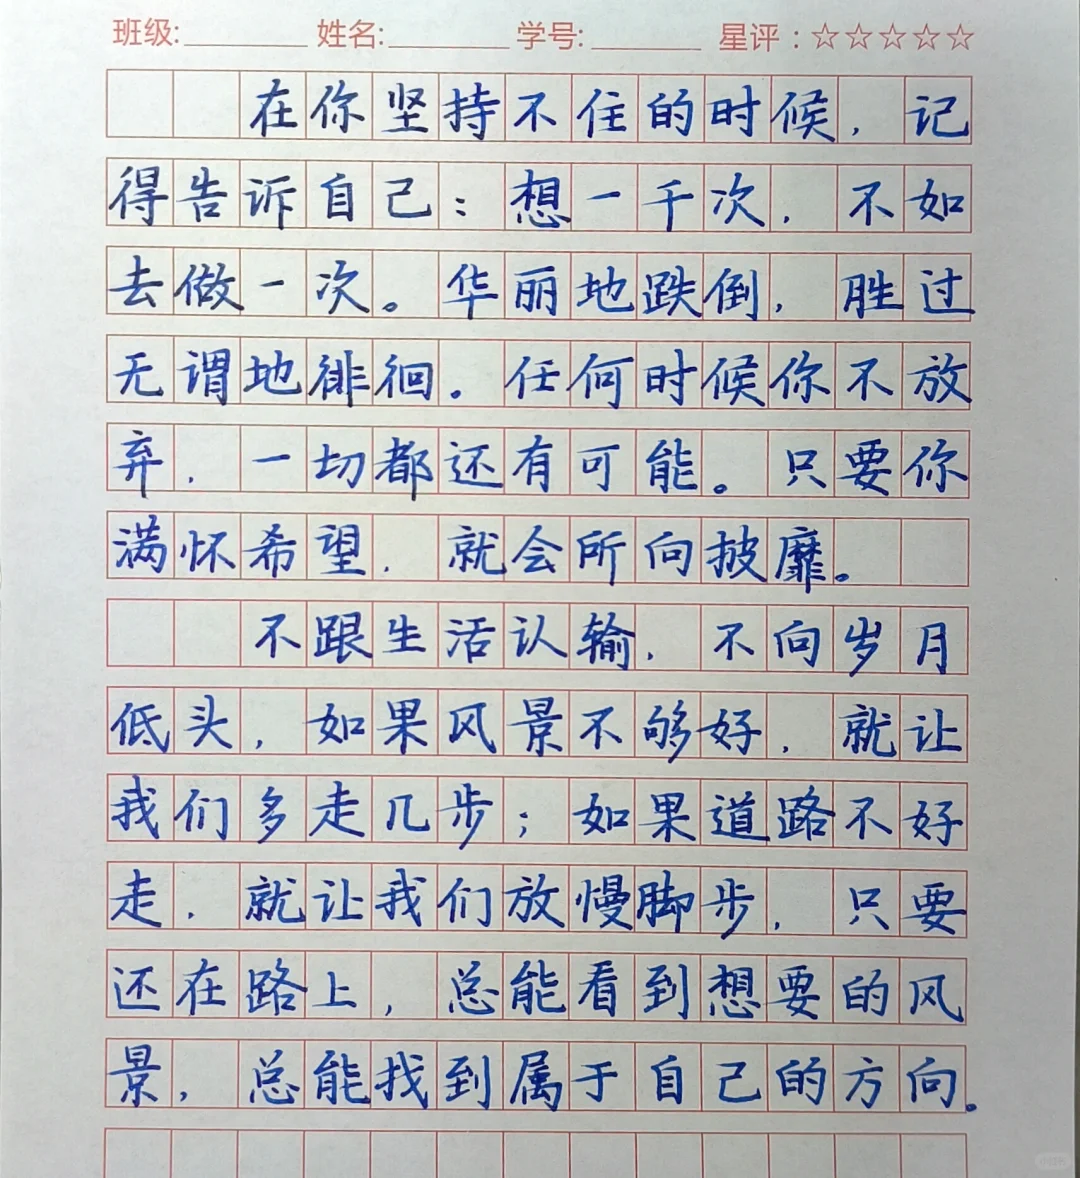 班级:________ 姓名:________ 学号:_______ 星评:☆☆☆☆☆
在你坚持不住的时候，记
得告诉自己：想一千次，不如
去做一次。华丽地跌倒，胜过
无谓地徘徊。任何时候你不放
弃，一切都还有可能。只要你
满怀希望，就会所向披靡。
不跟生活认输，不向岁月
低头，如果风景不够好，就让
我们多走几步；如果道路不好
走，就让我们放慢脚步，只要
还在路上，总能看到想要的风
景，总能找到属于自己的方向。